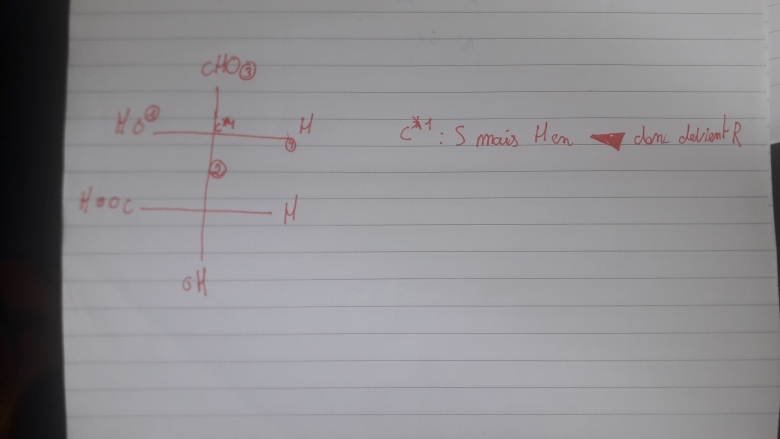 CHO③
HO① C*1 H
④
②
C*1 : S mais H en donc devient R
HOOC H
OH